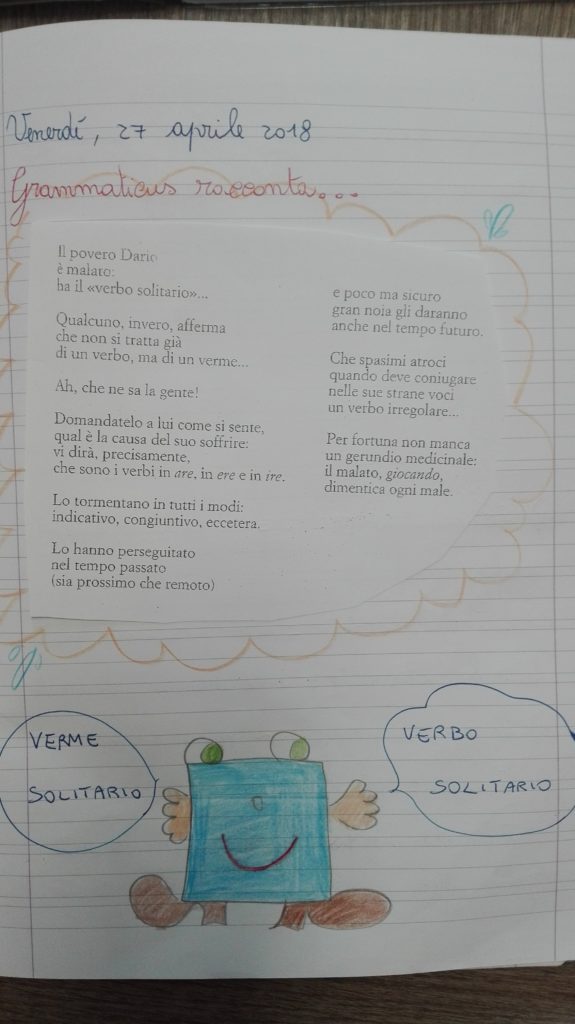 Venerdí, 27 aprile 2018
Grammaticus racconta...
Il povero Dario
è malato:
ha il «verbo solitario»...
Qualcuno, invero, afferma
che non si tratta già
di un verbo, ma di un verme...
Ah, che ne sa la gente!
Domandatelo a lui come si sente,
qual è la causa del suo soffrire:
vi dirà, precisamente,
che sono i verbi in are, in ere e in ire.
Lo tormentano in tutti i modi:
indicativo, congiuntivo, eccetera.
Lo hanno perseguitato
nel tempo passato
(sia prossimo che remoto)
e poco ma sicuro
gran noia gli daranno
anche nel tempo futuro.
Che spasimi atroci
quando deve coniugare
nelle sue strane voci
un verbo irregolare...
Per fortuna non manca
un gerundio medicinale:
il malato, giocando,
dimentica ogni male.
VERME
SOLITARIO
VERBO
SOLITARIO